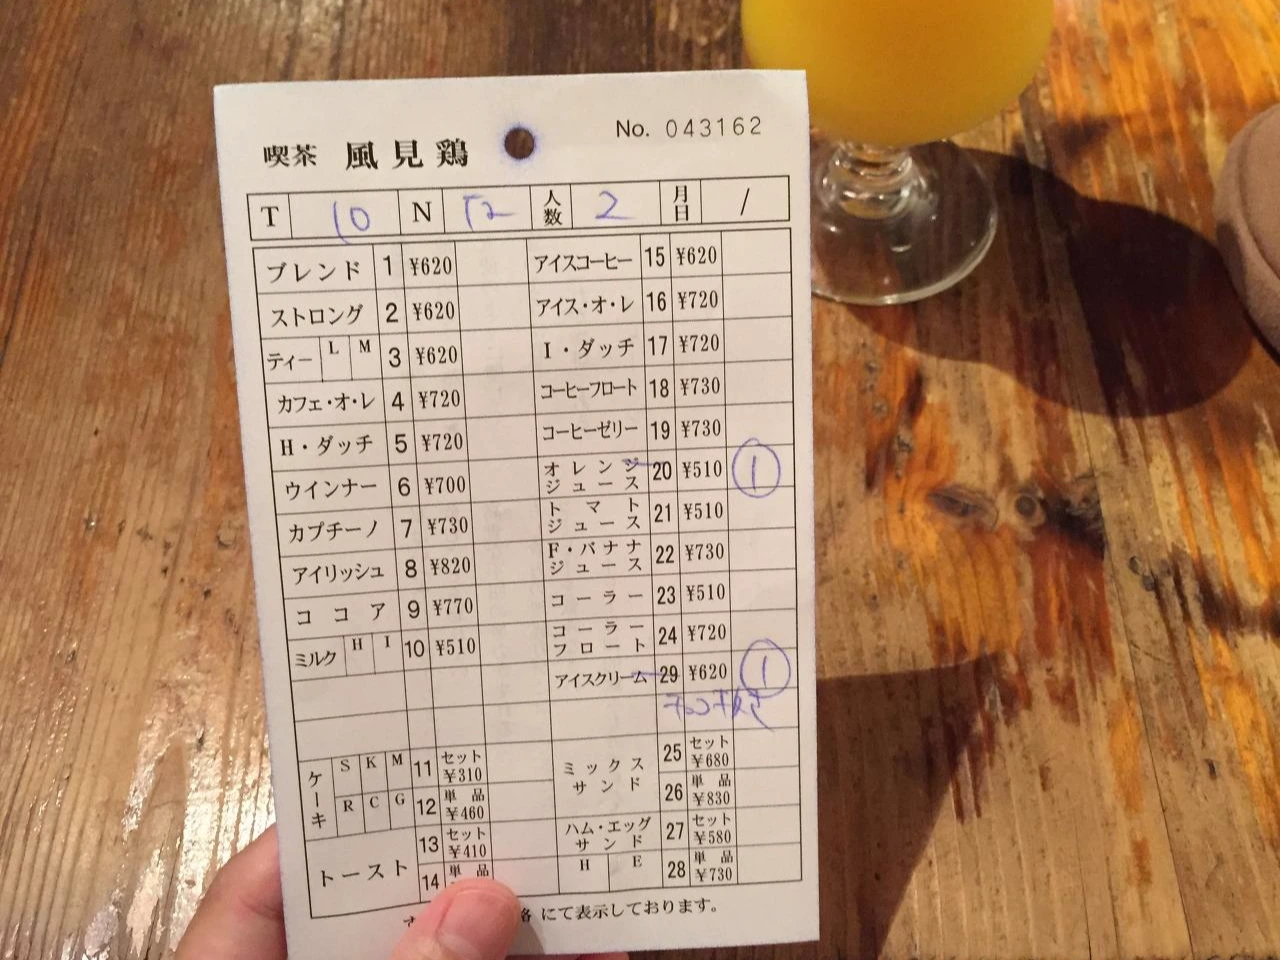 喫茶 風見鶏 No. 043162
T 10 N 人数 2 月日 /
ブレンド 1 ¥620
ストロング 2 ¥620
ティー L M 3 ¥620
カフェ・オ・レ 4 ¥720
H・ダッチ 5 ¥720
ウインナー 6 ¥700
カプチーノ 7 ¥730
アイリッシュ 8 ¥820
ココア 9 ¥770
ミルク H I 10 ¥510
ケーキ S K M 11 セット ¥310
R C G 12 単品 ¥460
トースト 13 セット ¥410
14 単品
アイスコーヒー 15 ¥620
アイス・オ・レ 16 ¥720
I・ダッチ 17 ¥720
コーヒーフロート 18 ¥730
コーヒーゼリー 19 ¥730
オレンジジュース 20 ¥510 1
トマトジュース 21 ¥510
F・バナナジュース 22 ¥730
コーラー 23 ¥510
コーラーフロート 24 ¥720
アイスクリーム 29 ¥620 1
ミックスサンド 25 セット ¥680
26 単品 ¥830
ハム・エッグサンド 27 セット ¥580
H E 28 単品 ¥730
格 にて表示しております。